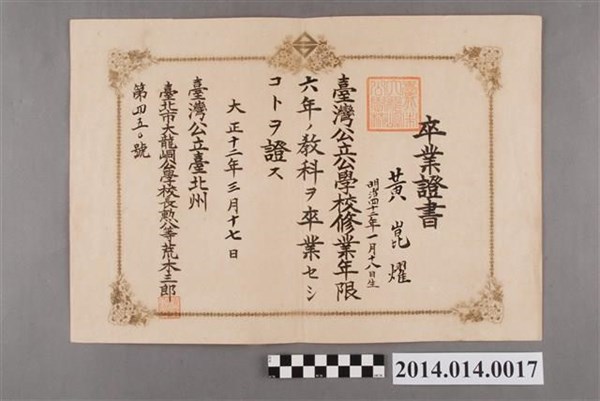 卒業證書
黃崑燿
明治四十三年一月十八日生
臺灣公立公學校修業年限
六年ノ教科ヲ卒業セシ
コトヲ證ス
大正十二年三月十七日
臺灣公立臺北州
臺北市大龍峒公學校長勲八等荒木三郎
第四五〇號
2014.014.0017